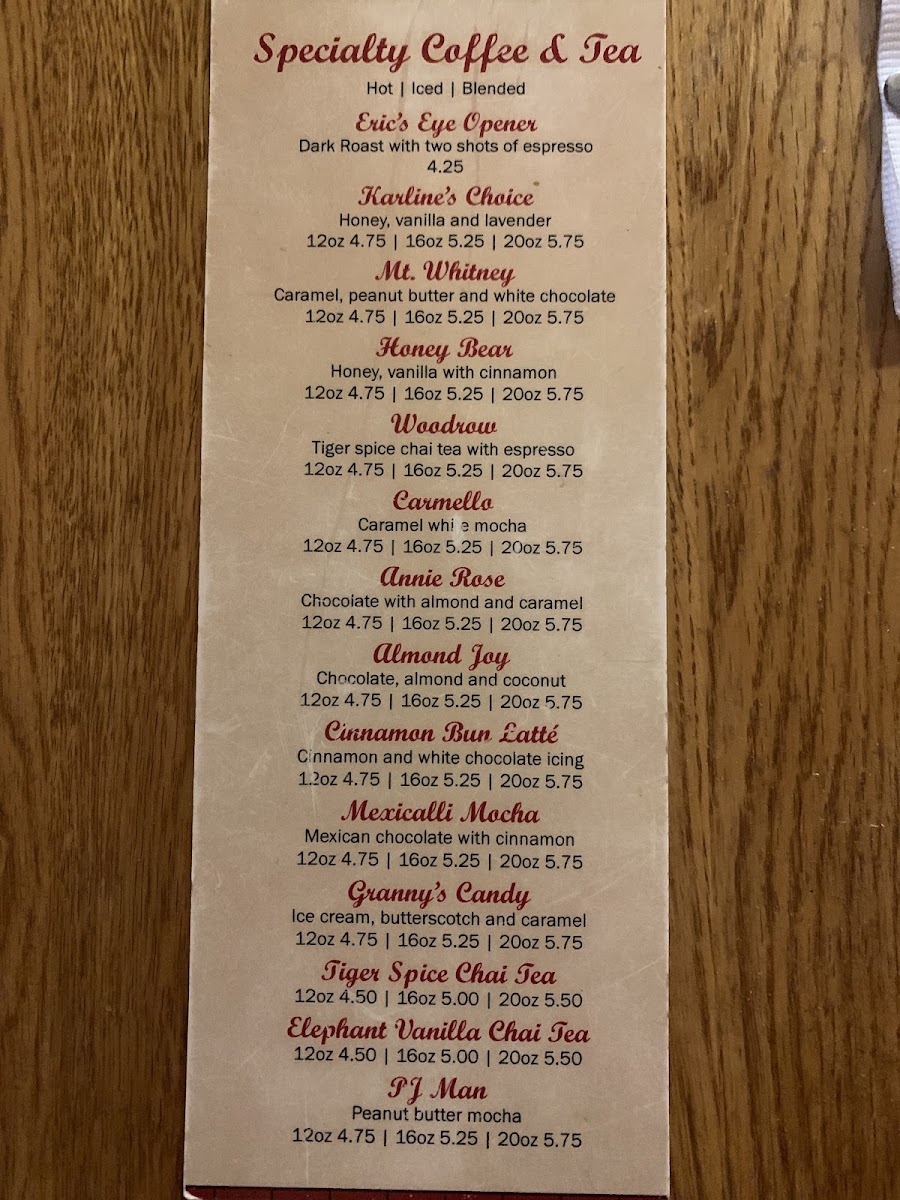 Specialty Coffee & Tea
Hot | Iced | Blended
Eric's Eye Opener
Dark Roast with two shots of espresso
4.25
Karline's Choice
Honey, vanilla and lavender
12oz 4.75 | 16oz 5.25 | 20oz 5.75
Mt. Whitney
Caramel, peanut butter and white chocolate
12oz 4.75 | 16oz 5.25 | 20oz 5.75
Honey Bear
Honey, vanilla with cinnamon
12oz 4.75 | 16oz 5.25 | 20oz 5.75
Woodrow
Tiger spice chai tea with espresso
12oz 4.75 | 16oz 5.25 | 20oz 5.75
Carmello
Caramel white mocha
12oz 4.75 | 16oz 5.25 | 20oz 5.75
Annie Rose
Chocolate with almond and caramel
12oz 4.75 | 16oz 5.25 | 20oz 5.75
Almond Joy
Chocolate, almond and coconut
12oz 4.75 | 16oz 5.25 | 20oz 5.75
Cinnamon Bun Latté
Cinnamon and white chocolate icing
12oz 4.75 | 16oz 5.25 | 20oz 5.75
Mexicalli Mocha
Mexican chocolate with cinnamon
12oz 4.75 | 16oz 5.25 | 20oz 5.75
Granny's Candy
Ice cream, butterscotch and caramel
12oz 4.75 | 16oz 5.25 | 20oz 5.75
Tiger Spice Chai Tea
12oz 4.50 | 16oz 5.00 | 20oz 5.50
Elephant Vanilla Chai Tea
12oz 4.50 | 16oz 5.00 | 20oz 5.50
PJ Man
Peanut butter mocha
12oz 4.75 | 16oz 5.25 | 20oz 5.75